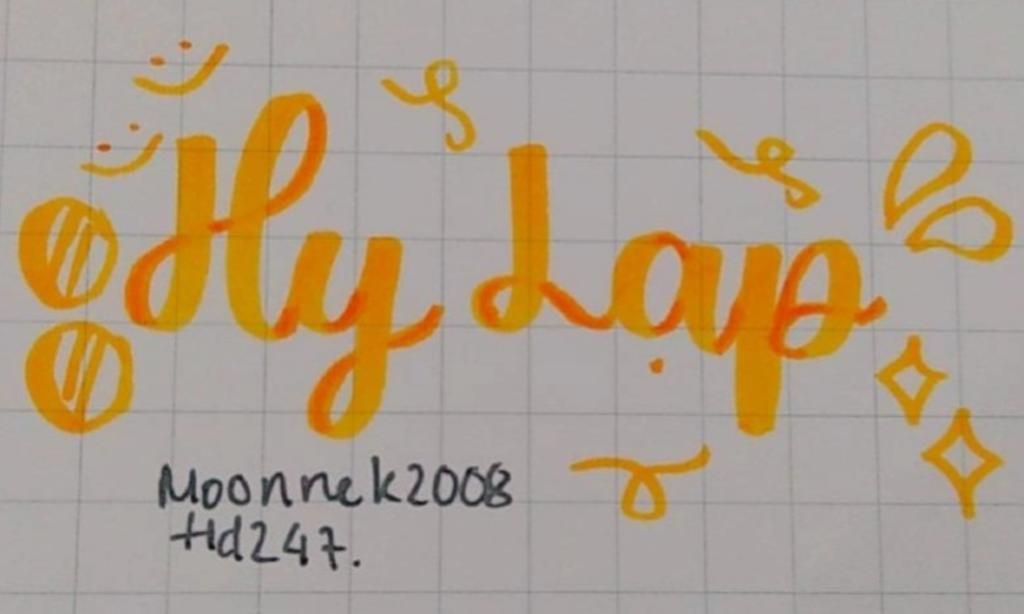 Hy Lạp
Moonnek2008
Hd247.